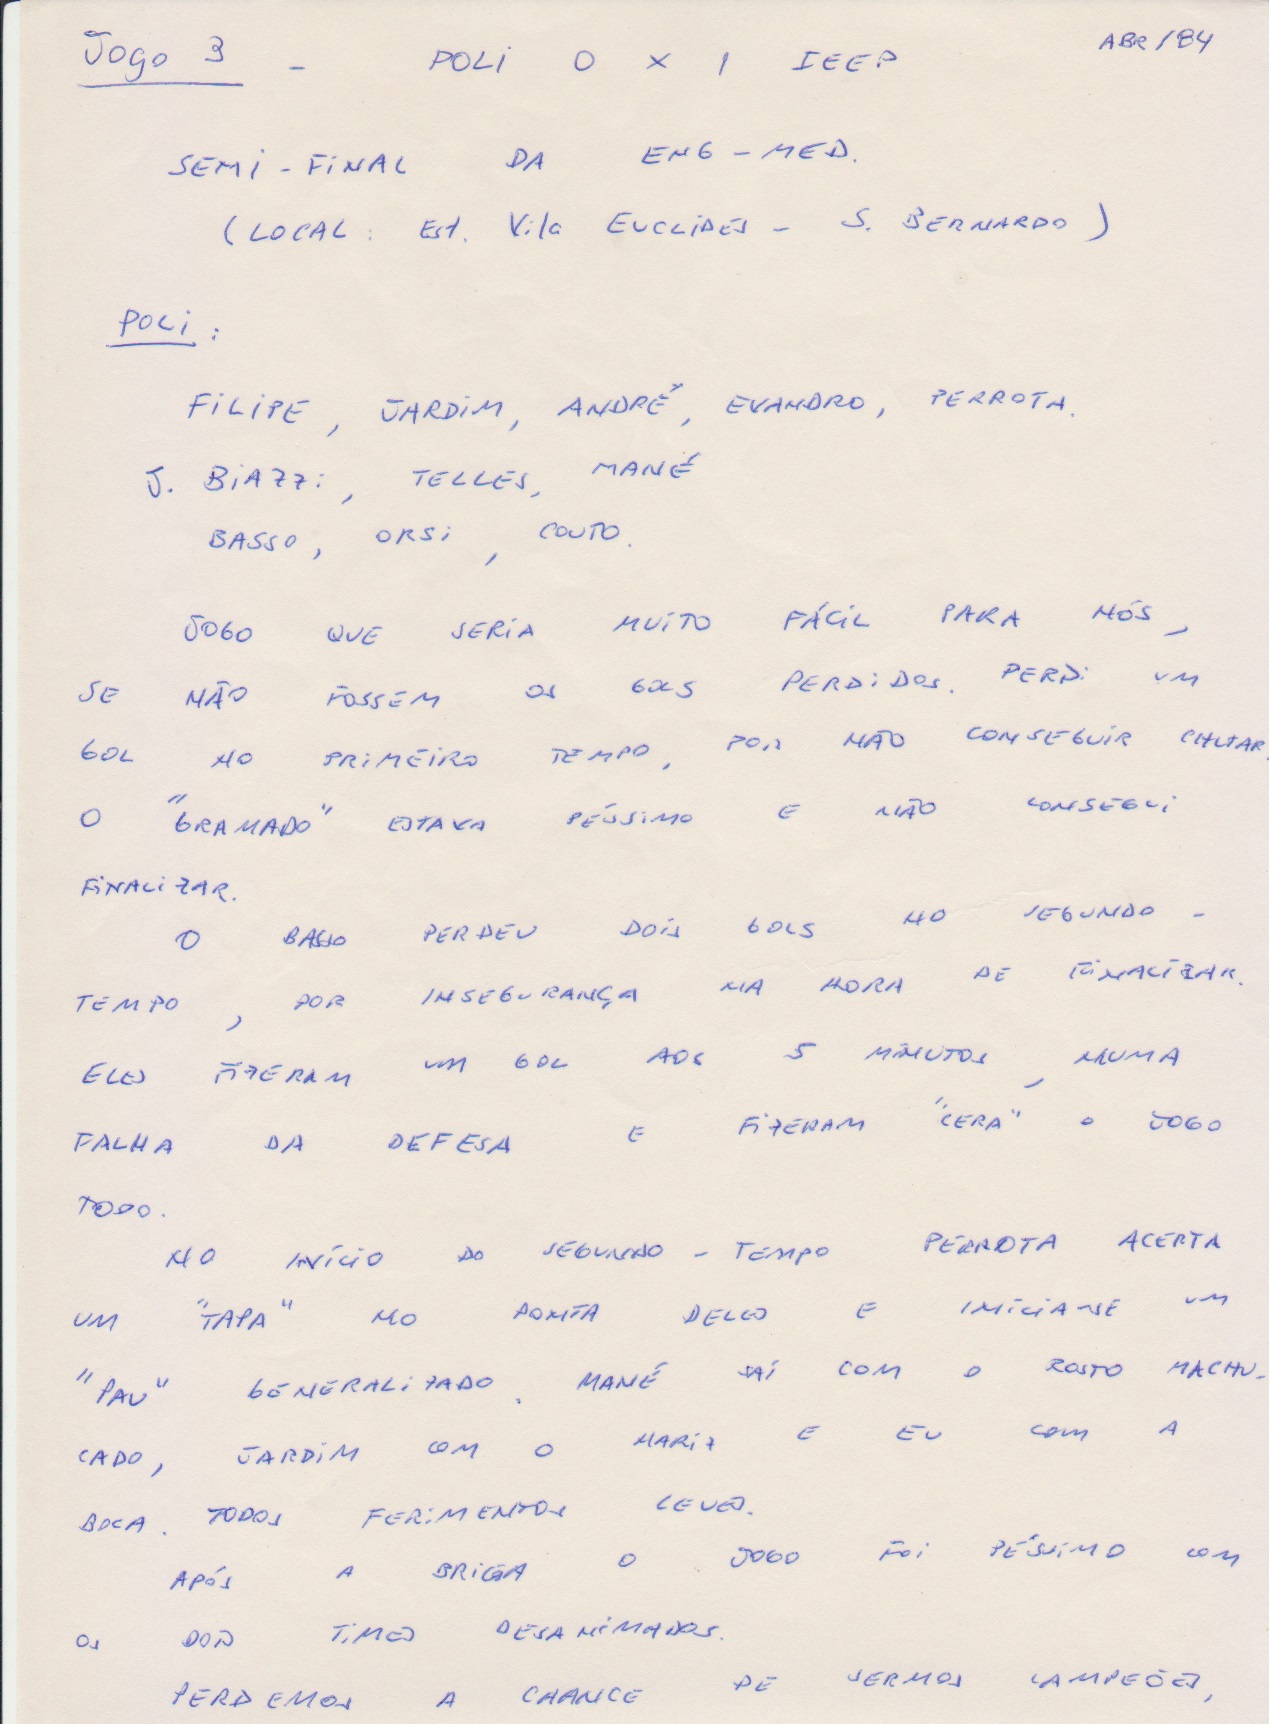 Jogo 3 - POLI 0 X 1 IEEP ABR/84
SEMI-FINAL DA ENG-MED.
(LOCAL: Est. Vila EUCLIDES - S. BERNARDO)
POLI:
FILIPE, JARDIM, ANDRÉ, EVANDRO, PERROTA.
J. BIAZZI, TELLES, MANÉ
BASSO, ORSI, COUTO.
JOGO QUE SERIA MUITO FÁCIL PARA NÓS,
SE NÃO FOSSEM OS GOLS PERDIDOS. PERDI UM
GOL NO PRIMEIRO TEMPO, POR NÃO CONSEGUIR CHUTAR.
O "GRAMADO" ESTAVA PÉSSIMO E NÃO CONSEGUI
FINALIZAR.
O BASSO PERDEU DOIS GOLS NO SEGUNDO-
TEMPO, POR INSEGURANÇA NA HORA DE FINALIZAR.
ELES FIZERAM UM GOL AOS 5 MINUTOS, NUMA
FALHA DA DEFESA E FIZERAM "CERA" O JOGO
TODO.
NO INÍCIO DO SEGUNDO-TEMPO PERROTA ACERTA
UM "TAPA" NO PONTA DELES E INICIA-SE UM
"PAU" GENERALIZADO. MANÉ SAÍ COM O ROSTO MACHU-
CADO, JARDIM COM O NARIZ E EU COM A
BOCA. TODOS FERIMENTOS LEVES.
APÓS A BRIGA O JOGO FOI PÉSSIMO COM
OS DOIS TIMES DESANIMADOS.
PERDEMOS A CHANCE DE SERMOS CAMPEÕES,